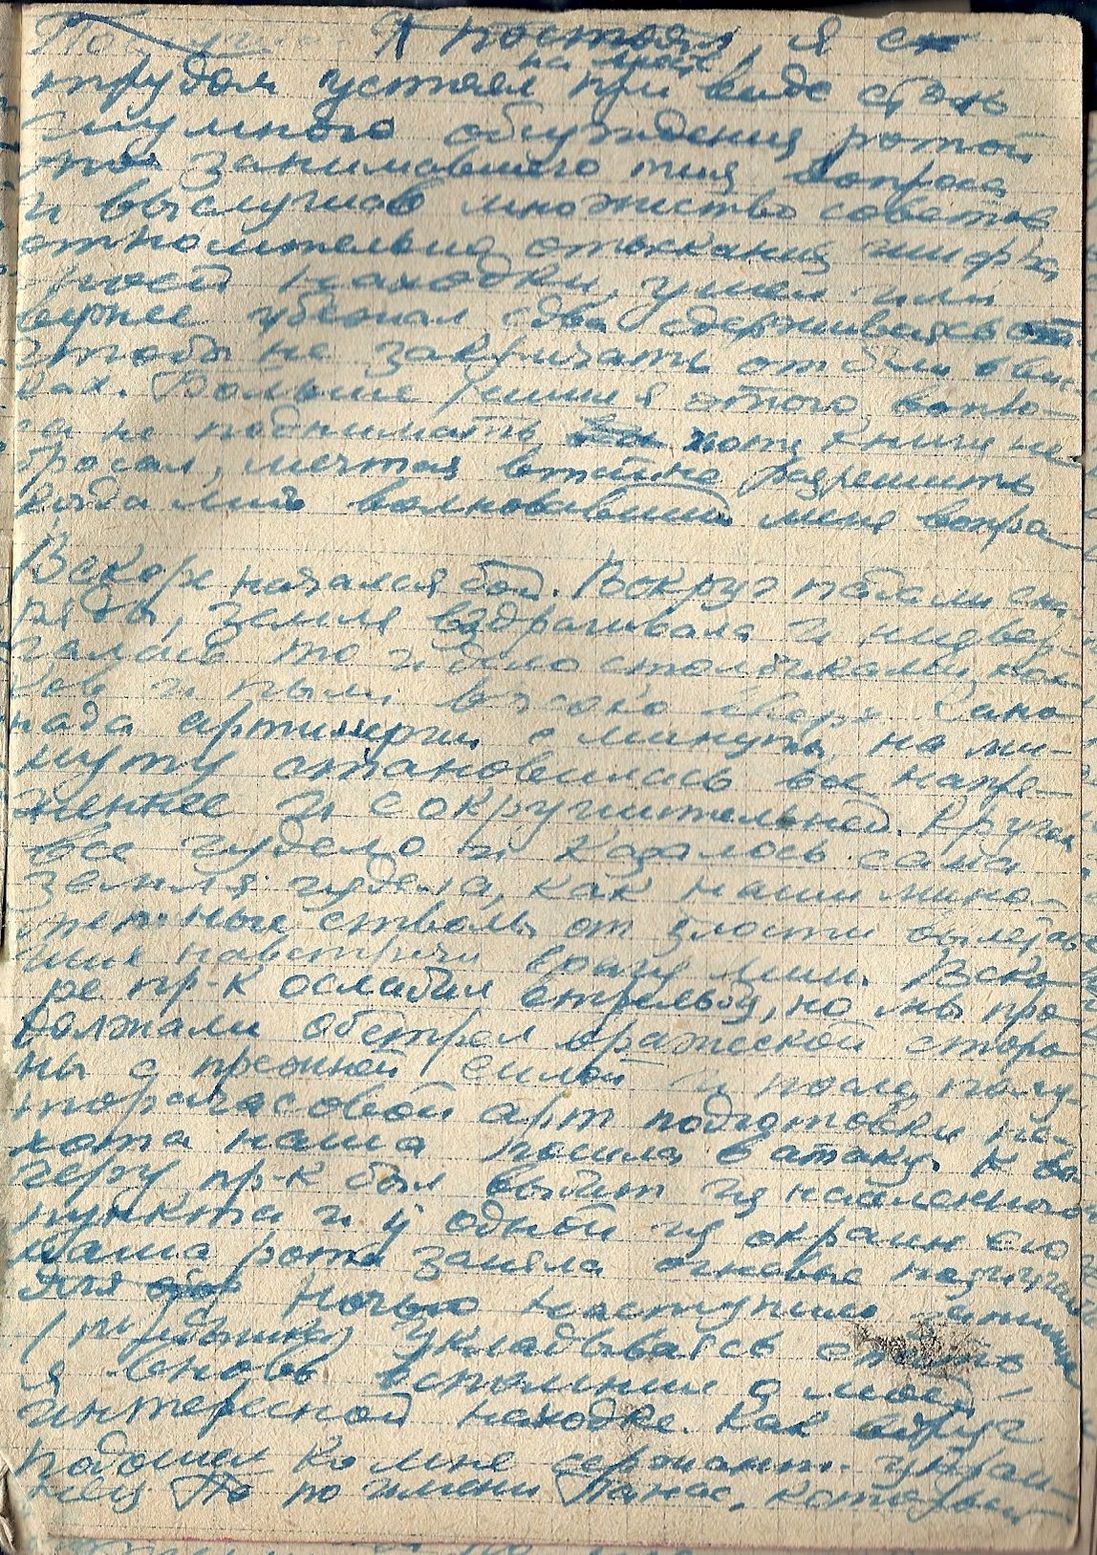 Я постоял, я с
на месте
трудом устоял при виде столь
шумного обсуждения ротой
занимавшего меня вопроса
и выслушав множество советов
относительно отыскания шифра
моей находки, ушел или
вернее убежал едва сдерживаясь
чтобы не закричать от боли в вис-
ках. Больше решил я этого вопро-
са не поднимать хотя книги не
бросал, мечтая втайне разрешить
когда либо волновавший меня вопро
с
Вскоре начался бой. Вокруг падали сна
ряды, земля вздрагивала и
то и дело столбиками
и пыли высоко вверх. Кано
нада артиллерии с минуты на ми-
нуту становилась все напря-
женнее и сокрушительней. Кругом
все гудело и казалось сама
земля гудела, как наши мино-
метные стволы от злости вылетав
ших навстречу врагу мин. Вско
ре пр-к ослабил стрельбу, но мы про
должали обстрел вражеской сторо
ны с прежней силой и после полу-
торачасовой арт подготовки пе-
хота наша пошла в атаку. К ве-
черу пр-к был выбит из населенного
пункта и у одной из окраин его
наша рота заняла огневые позиции
Ночью наступило затишье
укладываясь
я вновь вспомнил о моей
интересной находке. Как вдруг
подошел ко мне сержант украи-
нец По по имени Панас, который